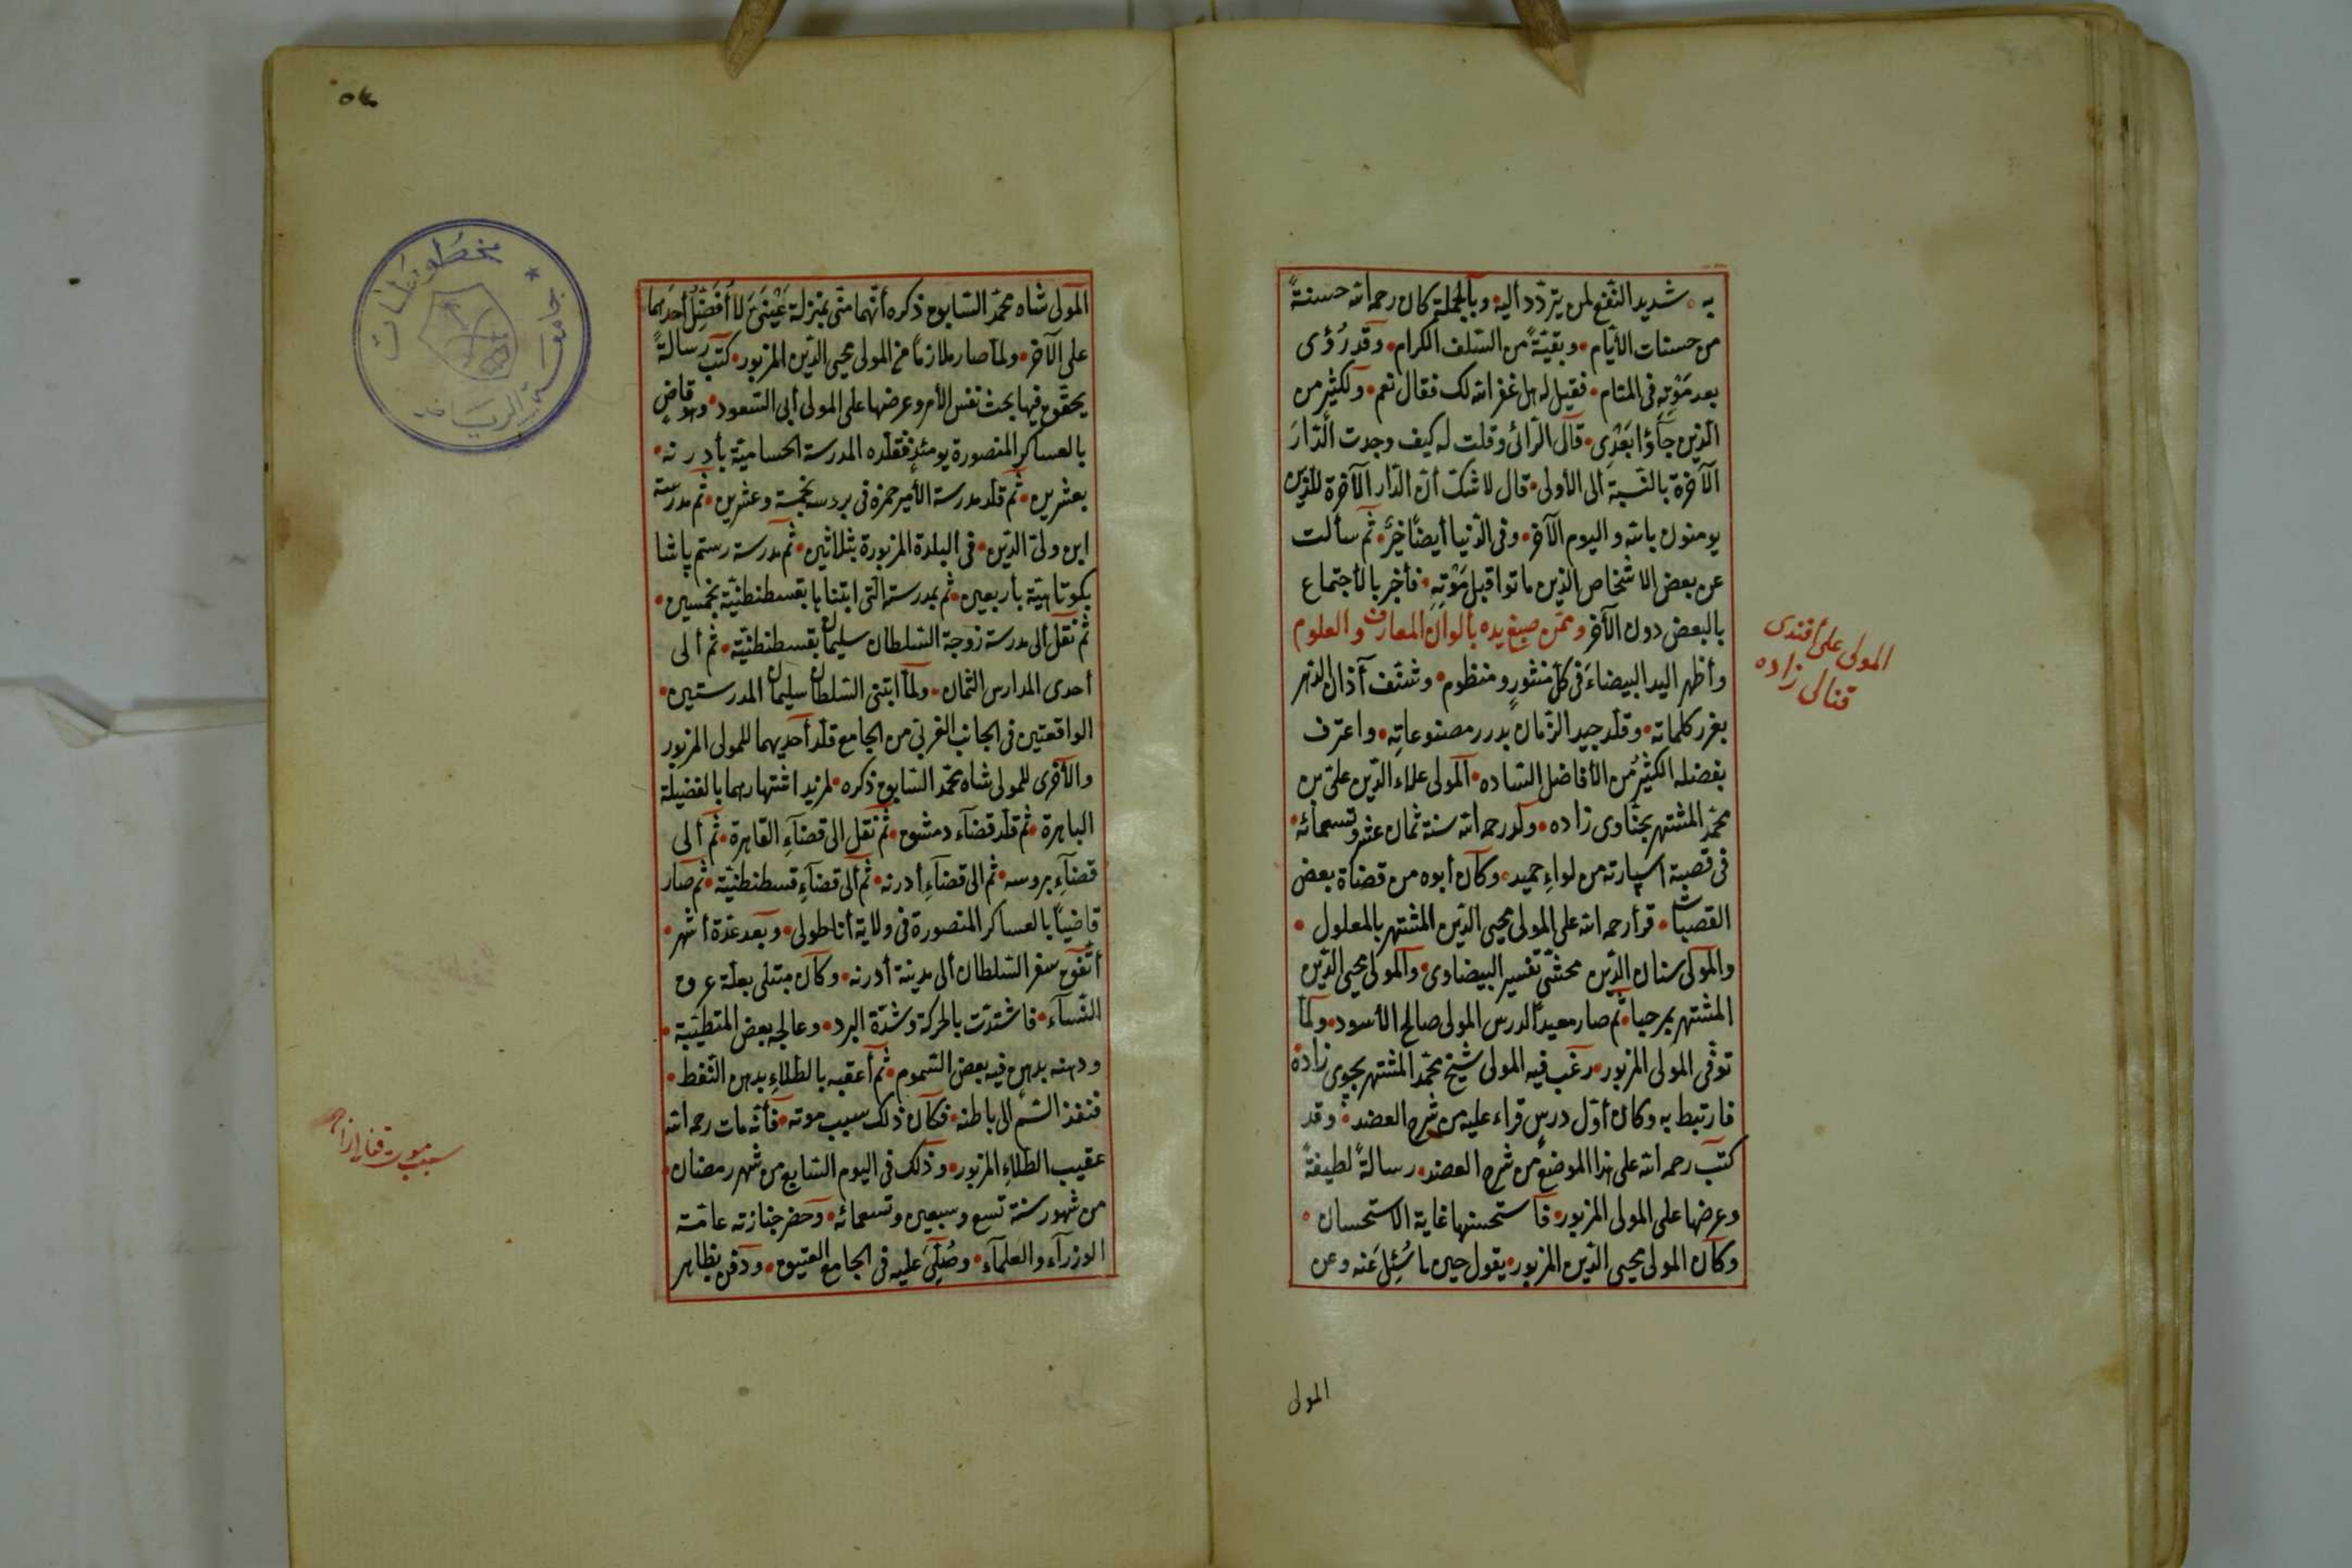 به شديد النفع لمن يتردد أليه وبالجملة كان رحمه الله حسنةً
من حسنات الأيام وبقيةً من السلف الكرام وقد رُؤى
بعد مَوْتِهِ فى المنام فقيل له هل غفر الله لك فقال نعم ولكثير من
الذين جَاؤا بَعْدِى قال الرائى وقلت له كيف وجدت الدّارَ
الآخرة بالنسبة الى الأولى قال لا شك أن الدار الآخرة للذين
يومنون بالله واليوم الآخر وفى الدنيا أيضاً خَيْرٌ ثم سألت
عن بعض الاشخاص الذين ماتوا قبل مَوْتِهِ فأخبر بالأجتماع
بالبعض دون الآخر وممّن صبغ يده بألوان المعارف والعلوم
وأظهر اليد البيضاءَ فى كل منثورٍ ومنظوم وشنّف آذان الدهر
بغرر كلماته وقلد جيد الزمان بدرر مصنوعاتِه واعترف
بفضله الكثيرُ من الأفاضل الساده المولى علاء الدّين علىّ بن
محمّد المشتهر بحنّاوى زاده ولد رحمه الله سنة ثمان عشر وتسعمائه
فى قصبة اسپارته من لواءِ حميد وكان أبوه من قضاة بعض
القصبات قرأ رحمه الله على المولى محيى الدّين المشتهر بالمعلول
والمولى سنان الدّين محشّى تفسير البيضاوى والمولى محيى الدّين
المشتهر بمرحبا ثم صار معيداً لدرس المولى صالح الأسود ولمّا
توفّى المولى المزبور رغب فيه المولى شيخ محمّد المشتهر بچوى زاده
فارتبط به وكان أوّل درسٍ قراء عليه من شرح العضد وقد
كتب رحمه الله على هذا الموضع من شرح العضد رسالةً لطيفةً
وعرضها على المولى المزبور فاستحسنها غاية الاستحسان
وكان المولى محيى الدّين المزبور يقول حين ما سُئِلَ عَنه وعن
المولى على أفندى
قنالى زاده
المولى
المولى شاه محمّد السابق ذكره أنّهما منّى بمنزلة عَيْنَىَّ لا أُفَضِّلُ أحدَهما
على الآخر ولمّا صار ملازماً من المولى محيى الدّين المزبور كتب رسالةً
يحقّق فيها بحث نفس الأمر وعرضها على المولى أبى السعود وهو قاضٍ
بالعساكر المنصورة يومئذٍ فقلّده المدرسة الحسامية بأدرنه
بعشرين ثم قلد مدرسة الأمير حمزه فى بروسه بخمسة وعشرين ثم مدرسة
ابن ولىّ الدّين فى البلدة المزبورة بثلاثين ثم مدرسة رستم پاشا
بكوتاهيّة بأربعين ثم بمدرسته التى ابتناها بقسطنطنيّة بخمسين
ثم نقل الى مدرسة زوجة السلطان سليمان بقسطنطنيّة ثم ألى
أحدى المدارس الثمان ولمّا ابتنى السلطان سليمان المدرستين
الواقعتين فى الجانب الغربى من الجامع قلد أحديهما للمولى المزبور
والأخرى للمولى شاه محمّد السابق ذكره لمزيد اشتهارهما بالفضيلة
الباهرة ثم قلد قضآء دمشق ثم نقل الى قضآءِ القاهرة ثم ألى
قضآءِ بروسه ثم الى قضآءِ أدرنه ثم ألى قضآءِ قسطنطنيّة ثم صار
قاضياً بالعساكر المنصورة فى ولاية أناطولى وبعد عدّة أشهر
أتّفق سفر السلطان ألى مدينة أدرنه وكان مبتلى بعلّة عرق
النسآء فاشتدّت بالحركة وشدّة البرد وعالجه بعض المتطبّبة
ودهنه بدهنٍ فيه بعض السّموم ثم أعقبه بالطلاءِ بدهن النفط
فنفذ السّم الى باطنه فكان ذلك سبب موته فأنّه مات رحمه الله
عقيب الطّلاءِ المزبور وذلك فى اليوم السّابع من شهر رمضان
من شهور سنة تسع وسبعين وتسعمائه وحضر جنازته عامّة
الوزرآء والعلمآء وصُلِّىَ عليه فى الجامع العتيق ودفن بظاهر
سبب موت قنالى زاده
جامعة الرياض
مخطوطات